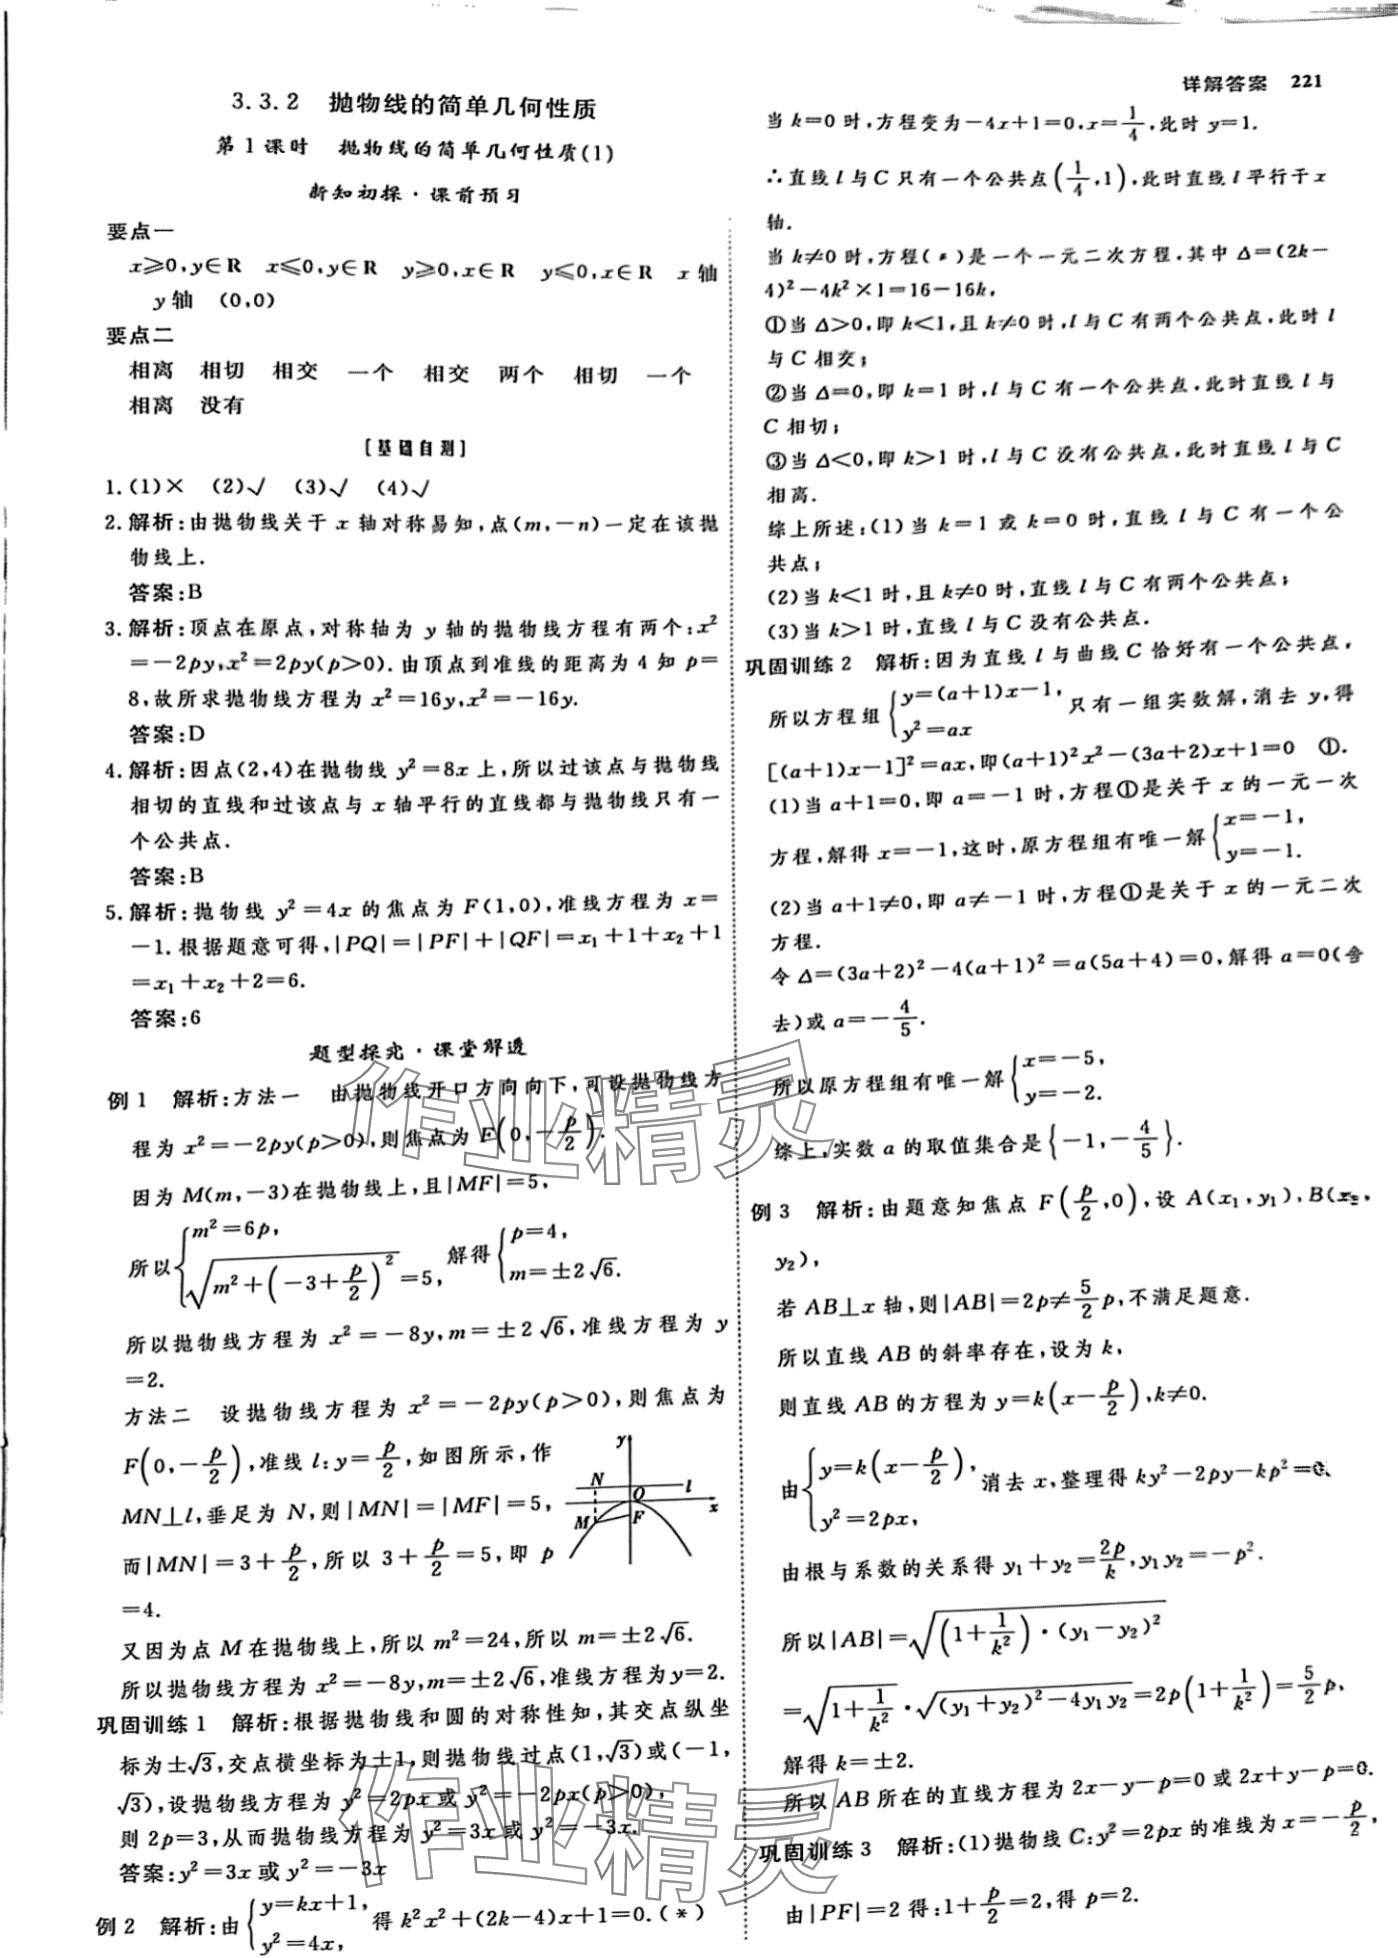 详解答案 221
3.3.2 抛物线的简单几何性质
第1课时 抛物线的简单几何性质(1)
新知初探·课前预习
要点一
x≥0,y∈R x≤0,y∈R y≥0,x∈R y≤0,x∈R x轴
y轴 (0,0)
要点二
相离 相切 相交 一个 相交 两个 相切 一个
相离 没有
[基础自测]
1.(1)× (2)√ (3)√ (4)√
2.解析:由抛物线关于x轴对称易知,点(m,-n)一定在该抛
物线上.
答案:B
3.解析:顶点在原点,对称轴为y轴的抛物线方程有两个:x²
=-2py,x²=2py(p>0).由顶点到准线的距离为4知p=
8,故所求抛物线方程为x²=16y,x²=-16y.
答案:D
4.解析:因点(2,4)在抛物线y²=8x上,所以过该点与抛物线
相切的直线和过该点与x轴平行的直线都与抛物线只有一
个公共点.
答案:B
5.解析:抛物线y²=4x的焦点为F(1,0),准线方程为x=
-1.根据题意可得,|PQ|=|PF|+|QF|=x₁+1+x₂+1
=x₁+x₂+2=6.
答案:6
题型探究·课堂解透
例1 解析:方法一 由抛物线开口方向向下,可设抛物线方
程为x²=-2py(p>0),则焦点为F(0,-p/2).
因为M(m,-3)在抛物线上,且|MF|=5,
所以{m²=6p, √(m²+(-3+p/2)²)=5, 解得{p=4, m=±2√6.
所以抛物线方程为x²=-8y,m=±2√6,准线方程为y
=2.
方法二 设抛物线方程为x²=-2py(p>0),则焦点为
F(0,-p/2),准线l:y=p/2,如图所示,作
MN⊥l,垂足为N,则|MN|=|MF|=5,
而|MN|=3+p/2,所以3+p/2=5,即p
=4.
y N l O x M F
又因为点M在抛物线上,所以m²=24,所以m=±2√6.
所以抛物线方程为x²=-8y,m=±2√6,准线方程为y=2.
巩固训练1 解析:根据抛物线和圆的对称性知,其交点纵坐
标为±√3,交点横坐标为±1,则抛物线过点(1,√3)或(-1,
√3),设抛物线方程为y²=2px或y²=-2px(p>0),
则2p=3,从而抛物线方程为y²=3x或y²=-3x.
答案:y²=3x或y²=-3x
例2 解析:由{y=kx+1, y²=4x, 得k²x²+(2k-4)x+1=0.(*)
当k=0时,方程变为-4x+1=0,x=1/4,此时y=1.
∴直线l与C只有一个公共点(1/4,1),此时直线l平行于x
轴.
当k≠0时,方程(*)是一个一元二次方程,其中Δ=(2k-
4)²-4k²×1=16-16k,
①当Δ>0,即k<1,且k≠0时,l与C有两个公共点,此时l
与C相交;
②当Δ=0,即k=1时,l与C有一个公共点,此时直线l与
C相切;
③当Δ<0,即k>1时,l与C没有公共点,此时直线l与C
相离.
综上所述:(1)当k=1或k=0时,直线l与C有一个公
共点;
(2)当k<1时,且k≠0时,直线l与C有两个公共点;
(3)当k>1时,直线l与C没有公共点.
巩固训练2 解析:因为直线l与曲线C恰好有一个公共点,
所以方程组{y=(a+1)x-1, y²=ax 只有一组实数解,消去y,得
[(a+1)x-1]²=ax,即(a+1)²x²-(3a+2)x+1=0 ①.
(1)当a+1=0,即a=-1时,方程①是关于x的一元一次
方程,解得x=-1,这时,原方程组有唯一解{x=-1, y=-1.
(2)当a+1≠0,即a≠-1时,方程①是关于x的一元二次
方程.
令Δ=(3a+2)²-4(a+1)²=a(5a+4)=0,解得a=0(舍
去)或a=-4/5.
所以原方程组有唯一解{x=-5, y=-2.
综上,实数a的取值集合是{-1,-4/5}.
例3 解析:由题意知焦点F(p/2,0),设A(x₁,y₁),B(x₂,
y₂),
若AB⊥x轴,则|AB|=2p≠5/2p,不满足题意.
所以直线AB的斜率存在,设为k,
则直线AB的方程为y=k(x-p/2),k≠0.
由{y=k(x-p/2), y²=2px, 消去x,整理得ky²-2py-kp²=0.
由根与系数的关系得y₁+y₂=2p/k,y₁y₂=-p².
所以|AB|=√((1+1/k²)·(y₁-y₂)²)
=√(1+1/k²)·√((y₁+y₂)²-4y₁y₂)=2p(1+1/k²)=5/2p,
解得k=±2.
所以AB所在的直线方程为2x-y-p=0或2x+y-p=0.
巩固训练3 解析:(1)抛物线C:y²=2px的准线为x=-p/2,
由|PF|=2得:1+p/2=2,得p=2.
作业精灵
作业精灵